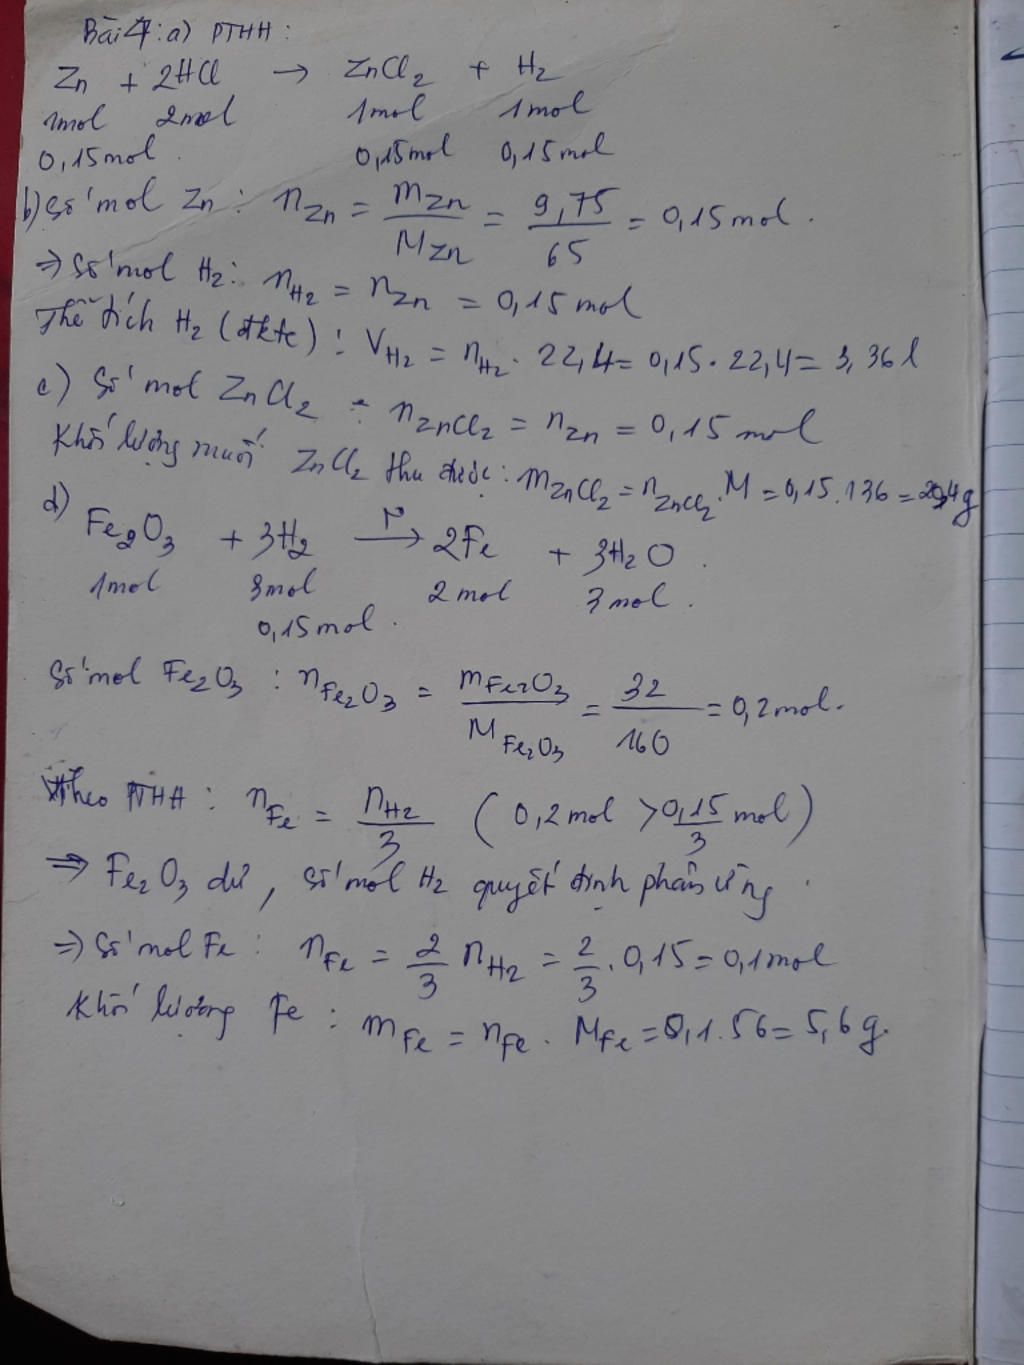 Bài 4: a) PTHH:
Zn + 2HCl → ZnCl2 + H2
1mol 2mol 1mol 1mol
0,15mol 0,15mol 0,15mol
b) Số mol Zn: nZn = mZn/MZn = 9,75/65 = 0,15 mol.
⇒ Số mol H2: nH2 = nZn = 0,15 mol
Thể tích H2 (đktc): VH2 = nH2 . 22,4 = 0,15 . 22,4 = 3,36 l
c) Số mol ZnCl2 : nZnCl2 = nZn = 0,15 mol
Khối lượng muối ZnCl2 thu được: mZnCl2 = nZnCl2 . M = 0,15 . 136 = 20,4 g
d)
Fe2O3 + 3H2 → 2Fe + 3H2O.
1mol 3mol 2mol 3mol.
0,15mol.
Số mol Fe2O3 : nFe2O3 = mFe2O3/MFe2O3 = 32/160 = 0,2mol.
Theo PTHH: nFe = nH2/3 (0,2mol > 0,15/3 mol)
⇒ Fe2O3 dư, số mol H2 quyết định phản ứng.
⇒ Số mol Fe: nFe = 2/3 nH2 = 2/3 . 0,15 = 0,1mol
Khối lượng Fe: mFe = nFe . MFe = 0,1 . 56 = 5,6 g.